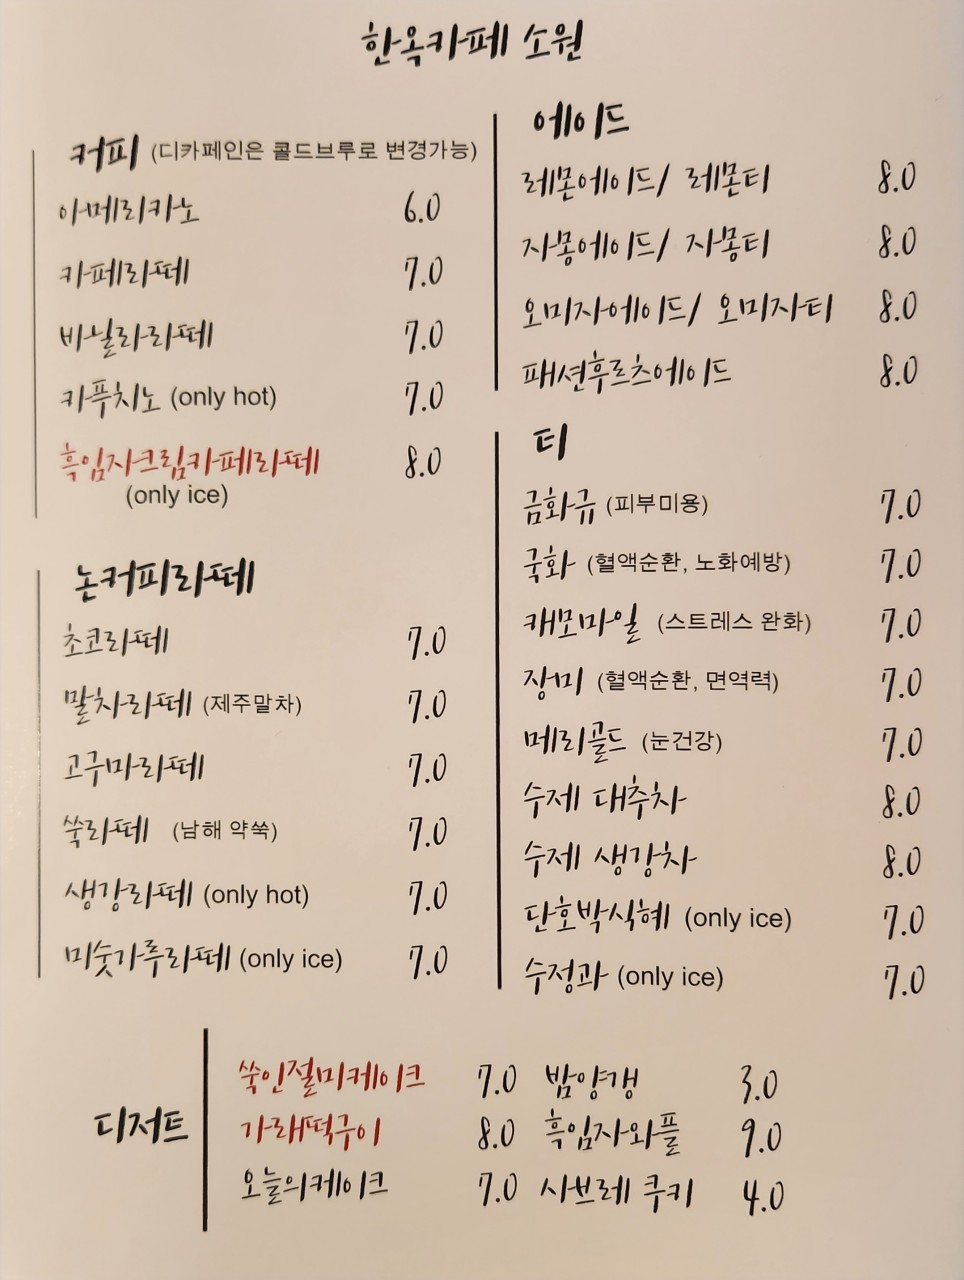 한옥카페 소원
커피 (디카페인은 콜드브루로 변경가능)
아메리카노 6.0
카페라떼 7.0
바닐라라떼 7.0
카푸치노 (only hot) 7.0
흑임자크림카페라떼 8.0
(only ice)
논커피라떼
초코라떼 7.0
말차라떼 (제주말차) 7.0
고구마라떼 7.0
쑥라떼 (남해 약쑥) 7.0
생강라떼 (only hot) 7.0
미숫가루라떼 (only ice) 7.0
에이드
레몬에이드/ 레몬티 8.0
자몽에이드/ 자몽티 8.0
오미자에이드/ 오미자티 8.0
패션후르츠에이드 8.0
티
금화규 (피부미용) 7.0
국화 (혈액순환, 노화예방) 7.0
캐모마일 (스트레스 완화) 7.0
장미 (혈액순환, 면역력) 7.0
메리골드 (눈건강) 7.0
수제 대추차 8.0
수제 생강차 8.0
단호박식혜 (only ice) 7.0
수정과 (only ice) 7.0
디저트
쑥인절미케이크 7.0 밤양갱 3.0
가래떡구이 8.0 흑임자와플 9.0
오늘의케이크 7.0 사브레 쿠키 4.0